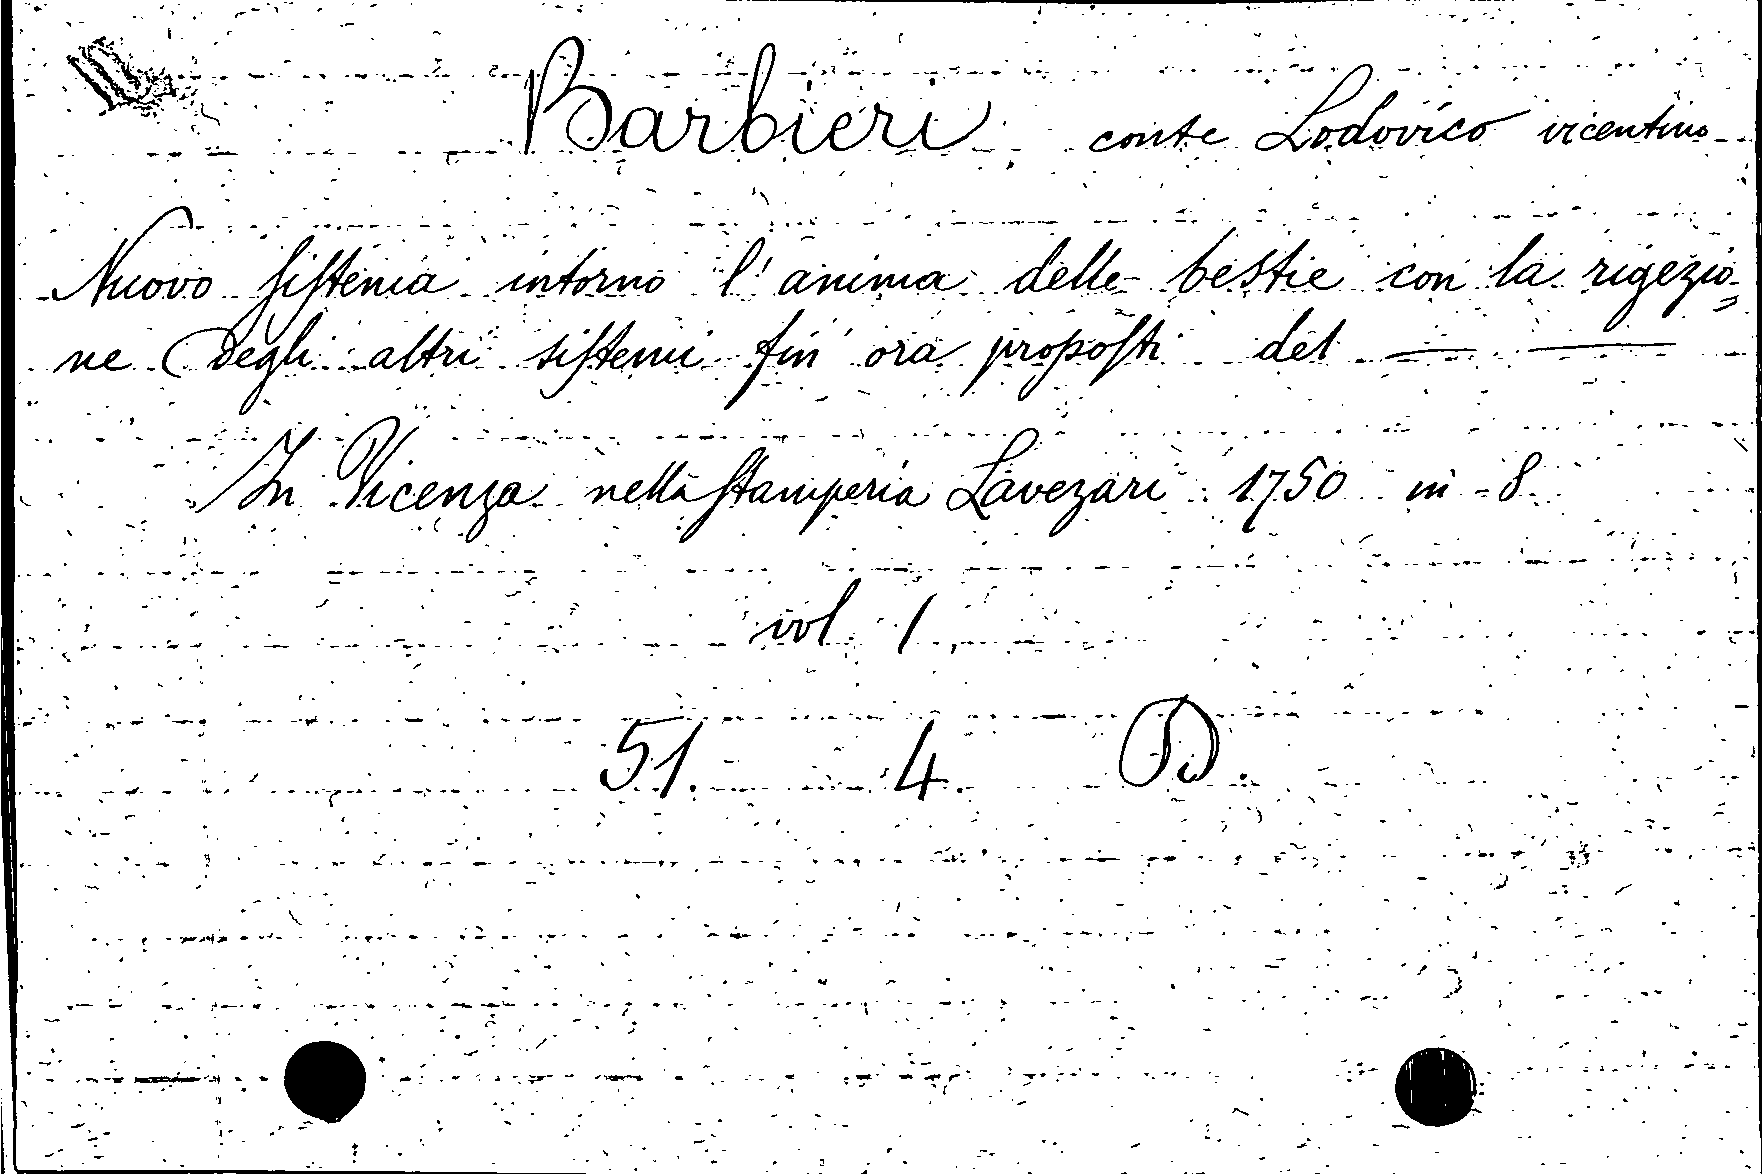 Barbieri conte Lodovico vicentino
Nuovo sistema intorno l'anima delle bestie con la rigezio=
ne degli altri sistemi fin' ora proposti del — —
In Vicenza nella stamperia Lavezari 1750 in 8
vol 1
51. 4. D.